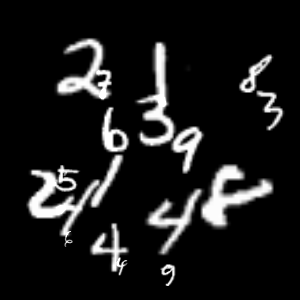 2 7 1 8
3
6 3 9
2 5 4 1 4 8
6 4 4
9